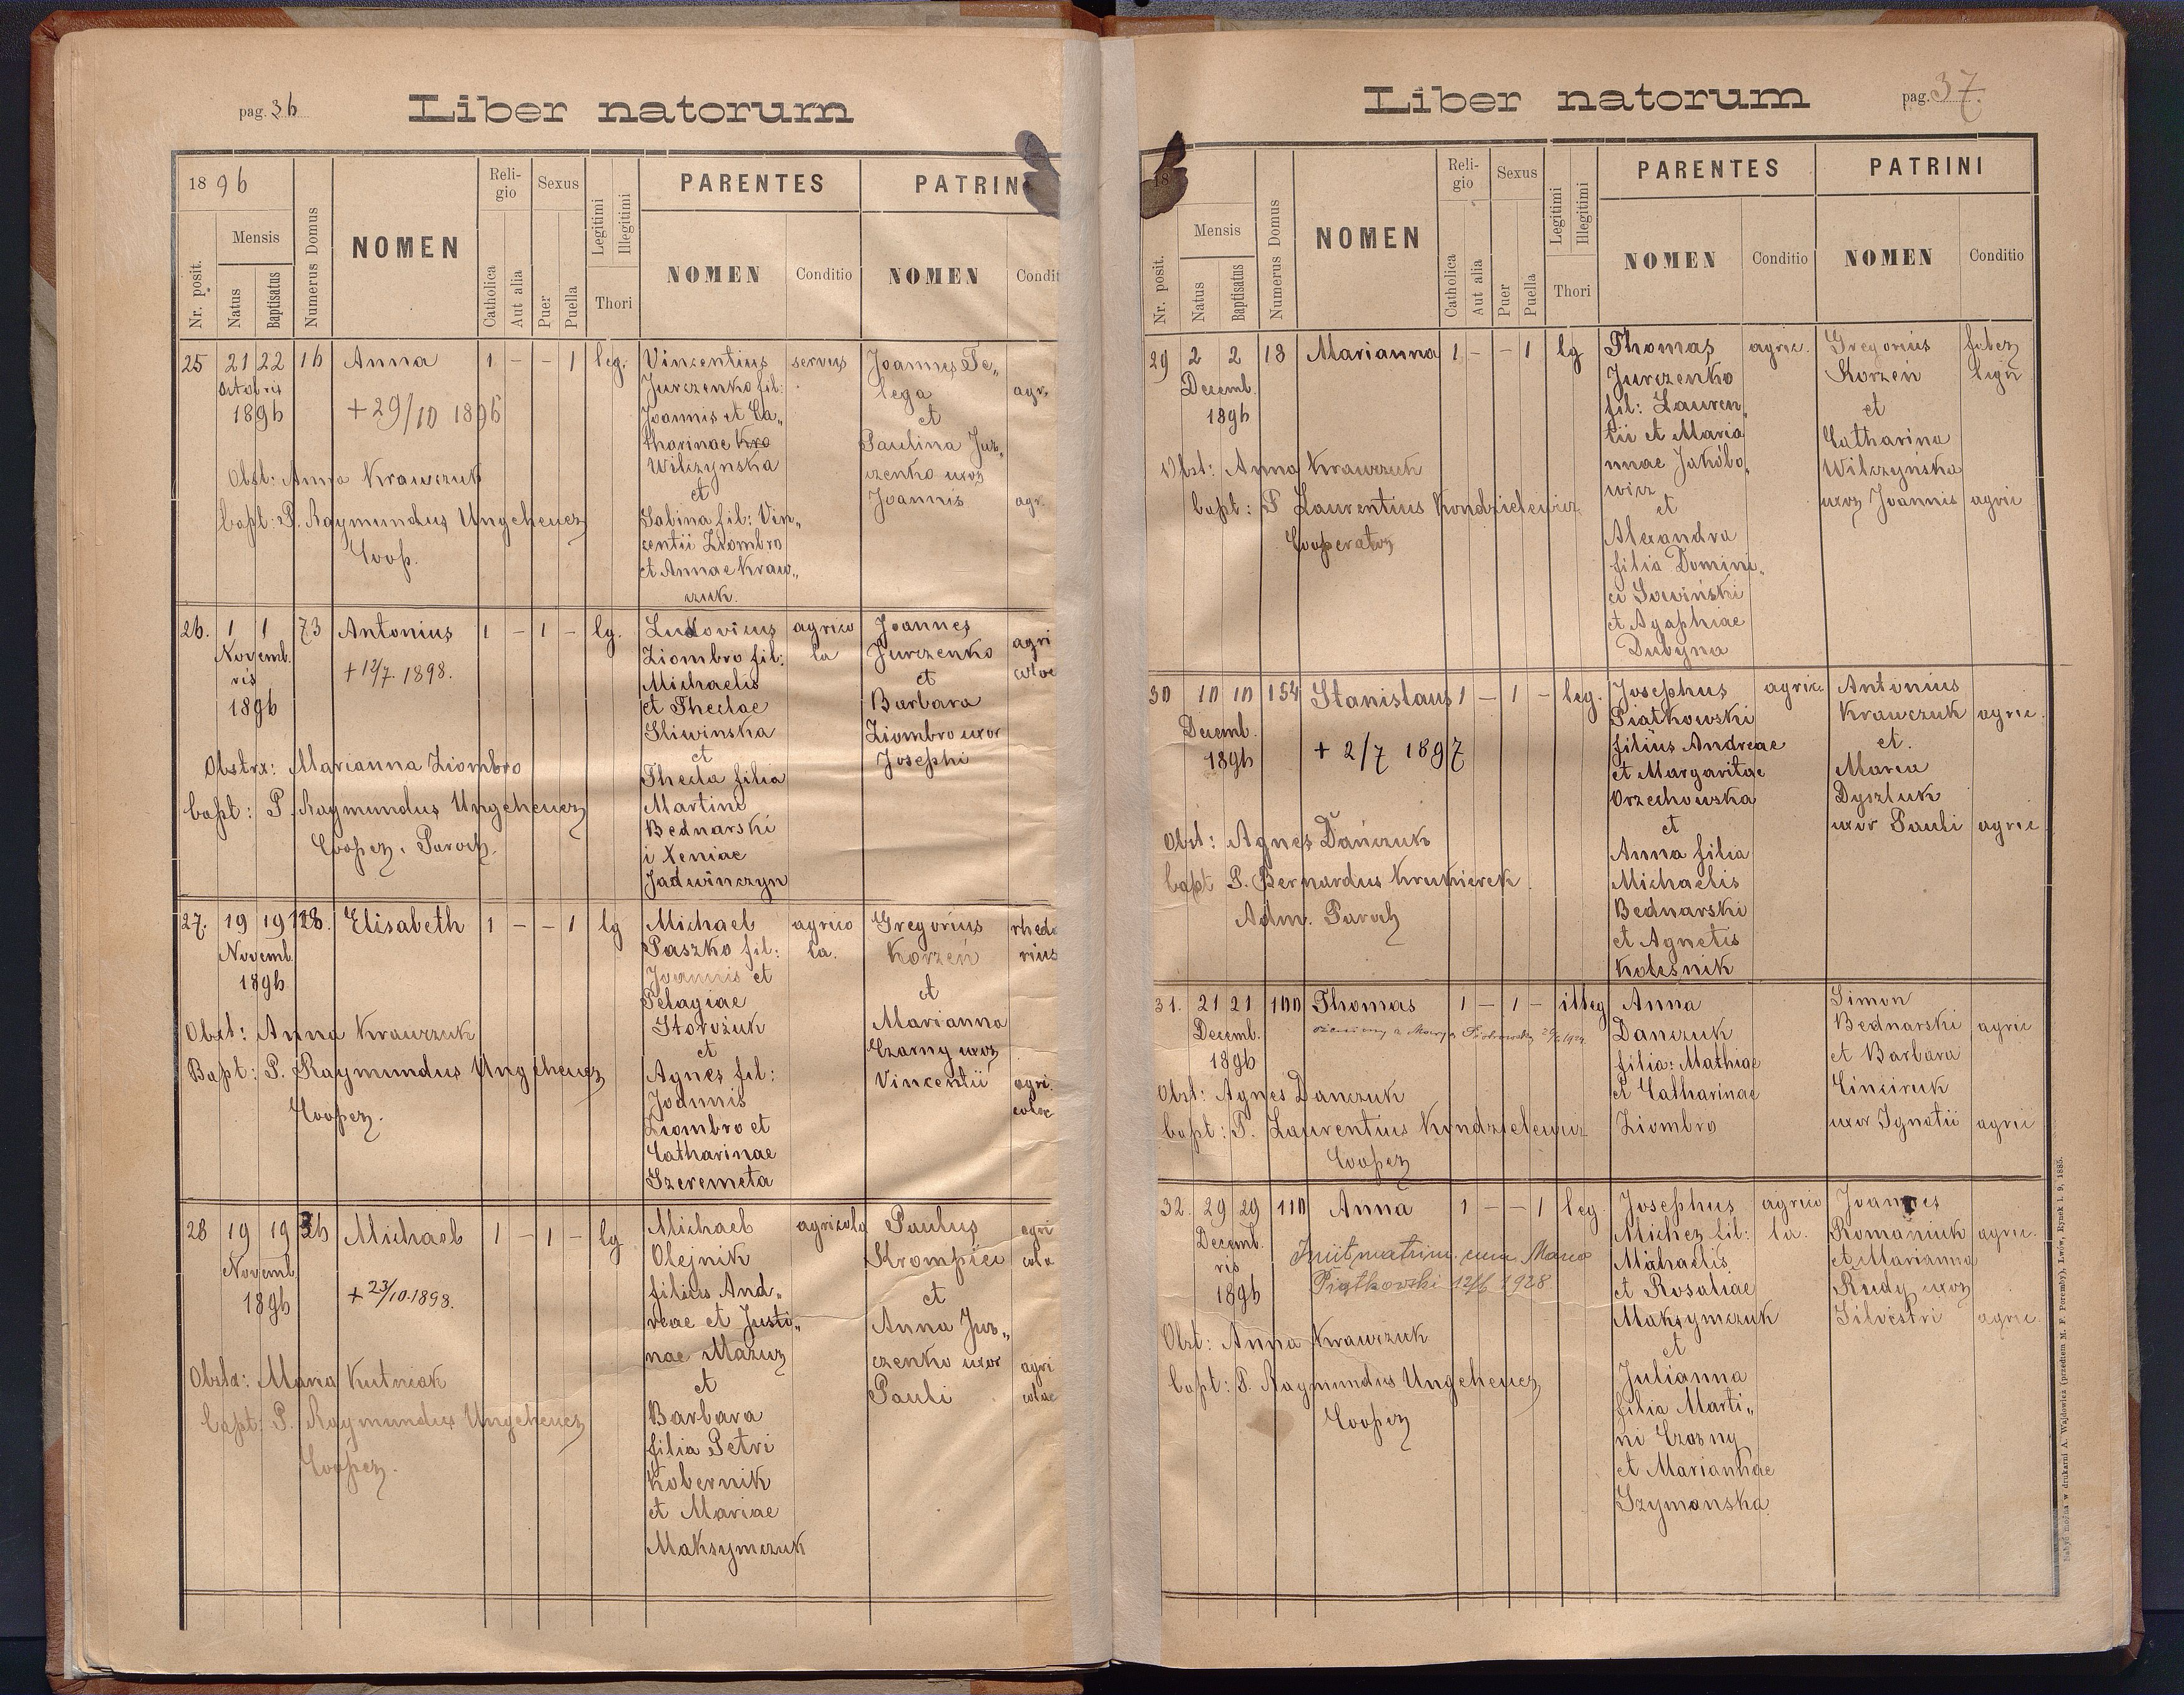 pag. 36
Liber natorum
1896
Nr. posit.
Mensis
Natus
Baptisatus
Numerus Domus
NOMEN
Religio
Catholica
Aut alia
Sexus
Puer
Puella
Legitimi
Illegitimi
Thori
PARENTES
NOMEN
Conditio
PATRIN
NOMEN
Condit
25 21 22 16 Anna 1 - - 1 leg.
Octobris
1896
+ 29/10 1896
Obst: Anna Krawczuk
bapt: P. Raymundus Ungeheuer
Coop.
Vincentius
Jurczenko fil:
Joannis et Ca„
tharinae Kro
Wilczynska
et
Sabina fil: Vin„
centii Ziombro
et Annae Kraw„
czuk.
servus
Joannes Te„
lega
et
Paulina Jur„
czenko uxor
Joannis
agr.
agr.
26. 1 1 73 Antonius 1 - 1 - lg.
Novemb.
ris
1896
+ 12/7. 1898.
Obstrx: Marianna Ziombro
bapt: P. Raymundus Ungeheuer
Cooper. Paroch.
Ludovicus
Ziombro fil:
Michaelis
et Theclae
Sliwinska
et
Thecla filia
Martini
Bednarski
i Xeniae
Jadwinczyn
agrico
la
Joannes
Jurczenko
et
Barbara
Ziombro uxor
Josephi
agri
colae
27. 19 19 128. Elisabeth 1 - - 1 lg
Novemb.
1896
Obst: Anna Krawczuk
Bapt: P. Raymundus Ungeheuer
Cooper.
Michael
Paszko fil:
Joannis et
Pelagiae
Storożuk
et
Agnes fil:
Joannis
Ziombro et
Catharinae
Szeremeta
agrico
la.
Gregorius
Korzeń
et
Marianna
Czarny uxor
Vincentii
rheda
rius
agri.
colae
28 19 19 36 Michael 1 - 1 - lg
Novemb.
1896
+ 23/10.1898.
Obstx: Maria Kutniak
bapt: P. Raymundus Ungeheuer
Cooper.
Michael
Olejnik
filius And„
reae et Justi„
nae Mazur
et
Barbara
filia Petri
Kobernik
et Mariae
Maksymczuk
agricola
Paulus
Krompiec
et
Anna Jur„
czenko uxor
Pauli
agri
cola
agri
colae
Liber natorum
pag. 37.
18
Nr. posit.
Mensis
Natus
Baptisatus
Numerus Domus
NOMEN
Religio
Catholica
Aut alia
Sexus
Puer
Puella
Legitimi
Illegitimi
Thori
PARENTES
NOMEN
Conditio
PATRINI
NOMEN
Conditio
29 2 2 18 Marianna 1 - - 1 lg
Decemb.
1896
Obst: Anna Krawczuk
bapt: P Laurentius Kondzielewicz
Cooperator
Thomas
Jurczenko
fil: Lauren„
tii et Maria
nnae Jakóbo„
wicz
et
Alexandra
filia Domini„
ci Sowiński
et Agaphiae
Dubyna
agric.
Gregorius
Korzeń
et
Catharina
Wilczyńska
uxor Joannis
faber
lign
agric
30 10 10 154 Stanislaus 1 - 1 - leg.
Decemb.
1896
+ 2/7 1897
Obst: Agnes Dańczuk
bapt P. Bernardus Krukierek.
Adm. Paroch
Josephus
Piatkowski
filius Andreae
et Margaritae
Orzechowska
et
Anna filia
Michaelis
Bednarski
et Agnetis
Kolesnik
agric
Antonius
Krawczuk
et.
Maria
Dyszluk
uxor Pauli
agric.
agric
31. 21 21 100 Thomas 1 - 1 - illeg
Decemb.
1896
Obst: Agnes Danczuk
bapt: P. Laurentius Kondzielewicz
Cooper
Anna
Danczuk
filia: Mathiae
et Catharinae
Ziombro
Simon
Bednarski
et Barbara
uxor Ignatii
agric
agric
32. 29 29 110 Anna 1 - - 1 leg.
Decemb.
ris
1896
Iniit matrim. cum Marco
Piątkowski 1928
Obst: Anna Krawczuk
bapt: P. Raymundus Ungeheuer
Cooper
Josephus
Micher fil:
Michaelis
et Rosaliae
Maksymczuk
et
Julianna
filia Marti„
ni Czarny
et Mariannae
Szymanska
agrico
la.
Joannes
Romaniuk
et Marianna
Rudy uxor
Silvestri
agric.
agric.
Nabyć można w drukarni A. Wajdowicz (przedtem M. F. Poremby), Lwów, Rynek l. 9, 1885.